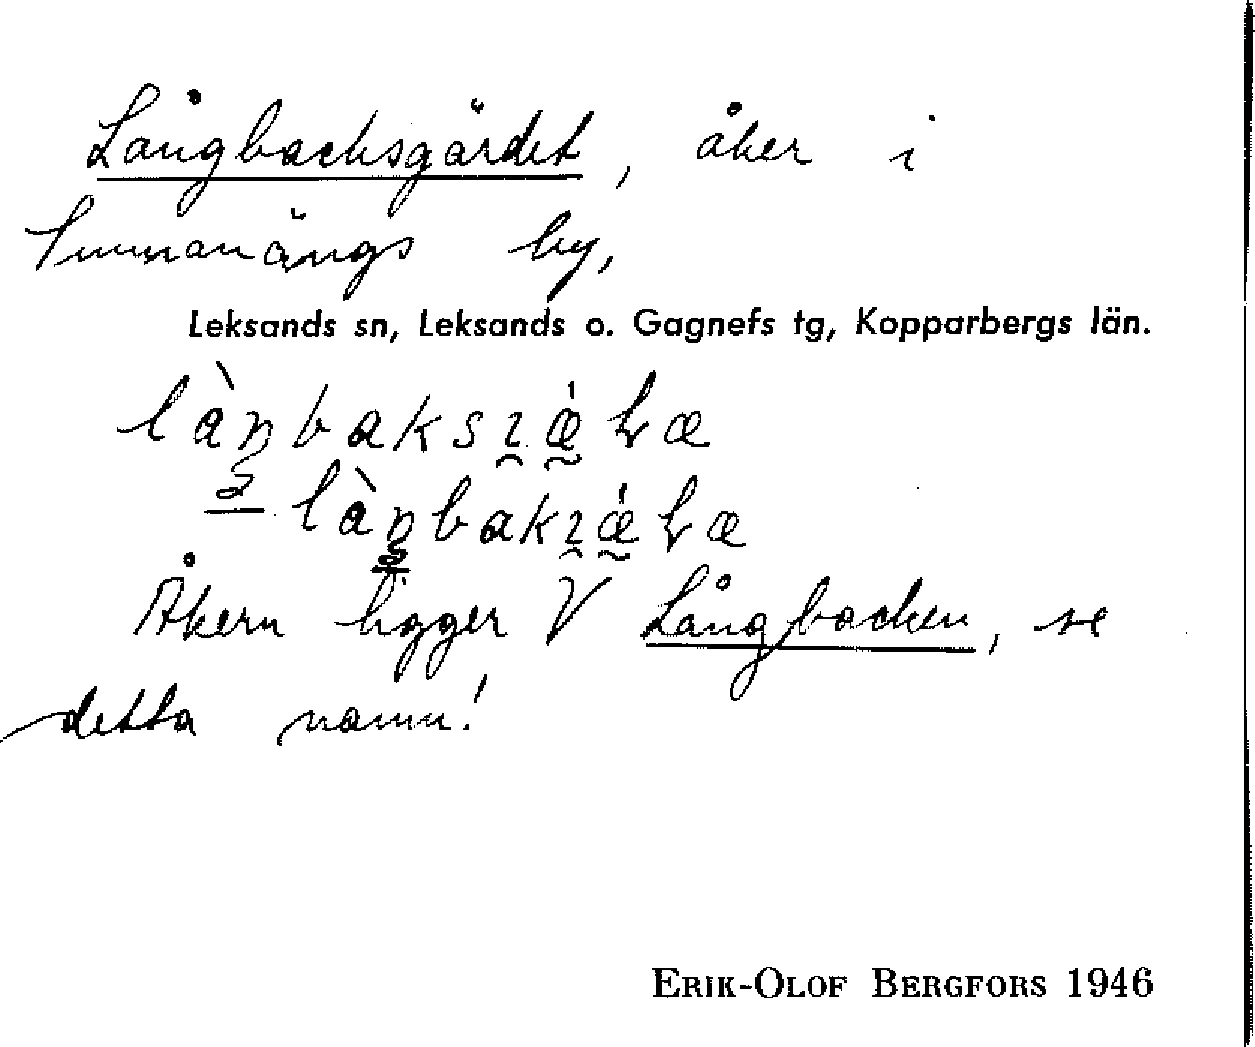 Långbacksgärdet, åker i
Sunnanängs by,
Leksands sn, Leksands o. Gagnefs tg, Kopparbergs län.
Åkern ligger V Långbacken, se
detta namn!
ERIK-OLOF BERGFORS 1946